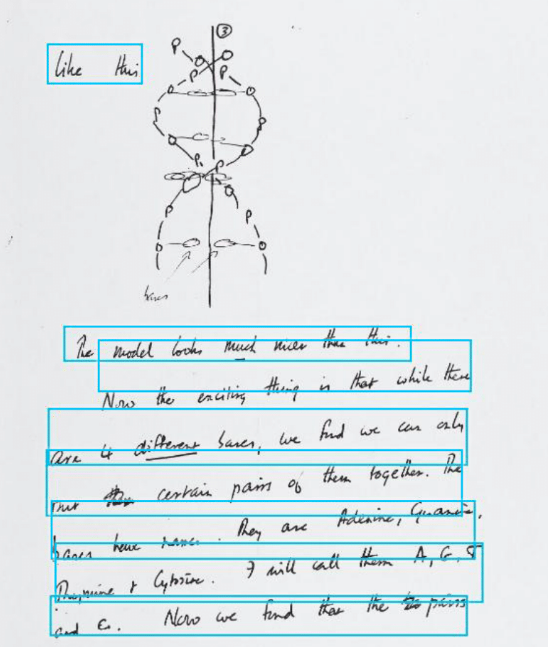 ③
like this
P P
P P
P P
P P
P P
bases
The model looks much nicer than this.
Now the exciting thing is that while there
are 4 different bases, we find we can only
put certain pairs of them together. The
bases have names. They are Adenine, Guanine,
Thymine & Cytosine. I will call them A, G, T
and C. Now we find that the pairs